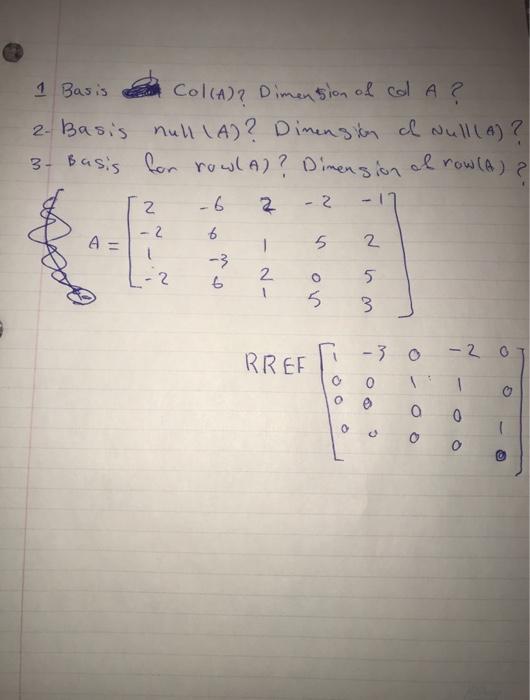 1 Basis Col(A)? Dimension of col A?
2- Basis null(A)? Dimension of Null(A)?
3- Basis for row(A)? Dimension of row(A)?
A = [ 2 -6 2 -2 -1 ]
-2 6 1 5 2
1 -3 2 0 5
-2 6 1 5 3
RREF [ 1 -3 0 -2 0 ]
0 0 1 1 0
0 0 0 0 1
0 0 0 0 0